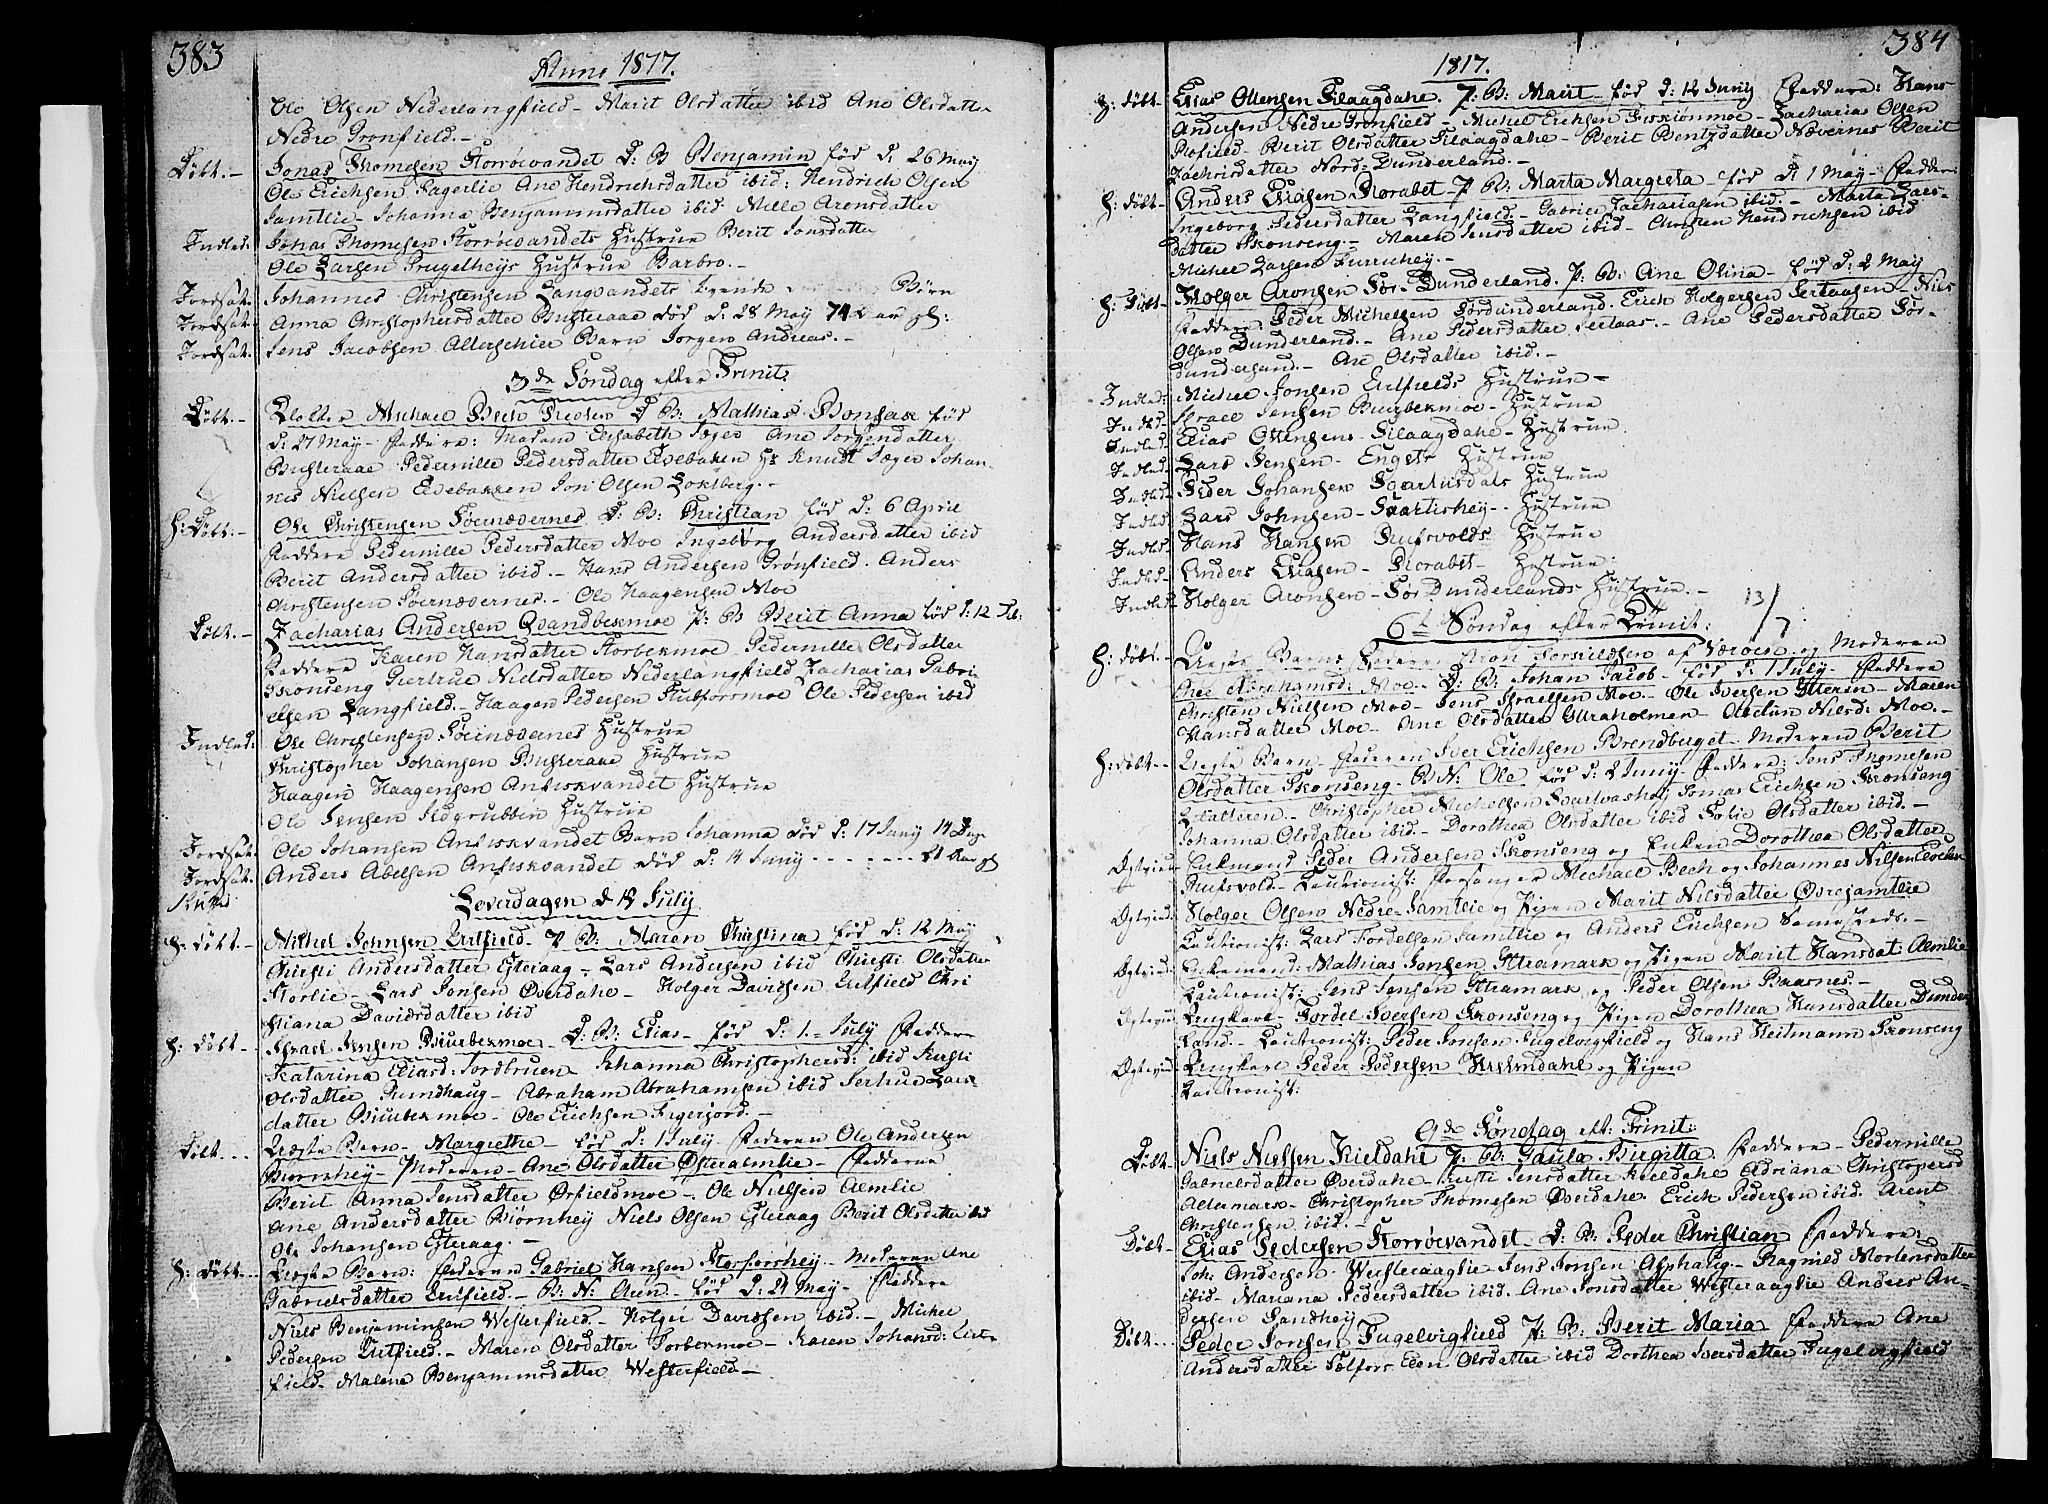 383
Anno 1817.
Ole Olsen Nederlangfield - Marit Olsdatter ibid Ane Olsdatter
Nedre Grønfield. -
Døbt. - Jonas Thomesen Storrøevandet D: B Benjamin fød d: 26 May
Ole Erichsen Fagerlie Ane Hendrichsdatter ibid: Hendrich Olsen
Jamtlie - Johanna Benjaminsdatter ibid Mille Arensdatter
Indled: Jonas Thomesen Storrøevandets Hustrue Berit Jonsdatter
Ole Larsen Prugelheys Hustrue Barbro. -
Jordsat. Johannes Christensen Langvandets Børn
Jordsat. Anna Christophersdatter Busteraae død d: 28 May 74
Jordsat. Jens Jacobsen Alterschier Barn Jørgen Andreas. -
3de Søndag efter Trinit:
Døbt. - Klokker Michael Bech D: B: Mathias Bonsak fød
d: 27 May - Faddere: Madame Elisabeth Jæger Ane Jørgendatter
Busteraae Pedernille Pedersdatter Eidebaken Hr Knudt Jæger Johan-
nes Nielsen Eidebakken Jon Olsen Loktberg. -
H: Døbt. - Ole Christensen Soernævernes D: B: Christian fød d: 6 April
Faddere Pedernille Pedersdatter Moe Ingeborg Andersdatter ibid
Berit Andersdatter ibid. - Hans Andersen Grønfield. Anders
Christensen Soernævernes. - Ole Haagensen Moe
Døbt. - Zacharias Andersen Qvandbekmoe P: B Berit Anna fød d: 12
Faddere Karen Hansdatter Storbekmoe - Pedernille Olsdatter
Skonseng Giertrue Nielsdatter Nederlangfield Zacharias Gabri-
elsen Langfield. - Haagen Pedersen Ole Pedersen ibid
Indled: Ole Christensen Soernævernes Hustrue
Christopher Johansen Busteraae Hustrue
Haagen Haagensen Andfiskvandet Hustrue
Ole Jensen Hustrue
Jordsat. Ole Johansen Andfiskvandet Barn Johanna død d: 17 Juny 14 Dage
Jordsat. Anders Abelsen Anfiskvandet død d: 14 Juny - - - - - - 21 Aar gl
Løverdagen d 12 July
H: Døbt - Michel Johnsen Urtfield - P B: Maren Christina fød d: 12 May
Christi Andersdatter Esteraag - Lars Andersen ibid Christi Olsdatter
Storlie - Lars Jonsen Øverdahl - Holger Davidsen Urtfield Chri
stiana Davidsdatter ibid
H: Døbt - Israel Jensen Biurbekmoe - D. B: Elias - fød d: 1 - July Faddere
Katarina Eliasd: Jordbruen - Johanna Christophersd: ibid Kirsti
Olsdatter Rundhaug - Abraham Abrahamsen ibid Lars
datter Biurbekmoe - Ole Erichsen Fagerjord. -
Døbt - - - Uægte Barn - Margrethe - fød d: 1 July - Faderen Ole Andersen
Biørnhey - Moderen - Ane Olsdatter Østeralmlie - Fadderne
Berit Anna Jensdatter Ørfieldmoe - Ole Nielsen Almlie
Ane Andersdatter Biørnhey Niels Olsen Esteraag Berit Olsdatter ibid
Ole Johansen Esteraag. -
H: Døbt - - Uægte Barn: Faderen Gabriel Hansen Storforshey - Moderen Ane
Gabrielsdatter Urtfield. - B: N: Aun - fød d: 29 May - Faddere
Niels Benjaminsen Westerfield. - Holger Davidsen ibid. - Michel
Pedersen Urtfield. - Maren Olsdatter Torbekmoe - Karen Johansd: Urt-
field - Malene Benjaminsdatter Westerfield -
384
1817.
H: Døbt - Elias Ottensen Silaagdahl. P: B: Marit fød d: 12 Juny Faddere: Hans
Andersen Nedre Grønfield - Michel Erichsen Fiskiønmoe - Zacharias Olsen
Røfield - Berit Olsdatter Silaagdahl - Berit Bentzdatter Nævernes Berit
Zachrisdatter Nord: Dunderland. -
H: Døbt - Anders Eliasen Rorabet - P B: Marta Margreta - fød d: 1 May - Faddere:
Ingeborg Pedersdatter Langfield. - Gabriel Zachariasen ibid. - Marta Lars-
datter Skonseng. - Maren Jensdatter ibid - Christen Hendrichsen ibid
Michel Larsen Furruhey. -
H: Døbt - Holger Aronsen Sør-Dunderland. P: B: Ane Olina - fød d: 2 May
Faddere: Peder Michelsen Sørdunderland. Erich Holgersen - Niels
Olsen Dunderland. - Ane Pedersdatter - Ane Pedersdatter Sør-
dunderland. - Ane Olsdatter ibid. -
Indled: Michel Jonsen Urtfields Hustrue -
Indled Israel Jensen Biurbekmoe - Hustrue
Indled Elias Ottensens - Silaagdahl - Hustrue.
Indled - Lars Jensen - Hustrue
Indled - Peder Johansen Svartisdals Hustrue
Indled Lars Johnsen - Svartishey - Hustrue
Indled - Hans Hansen Rufsvolds Hustrue
Indled - Anders Eliasen - Rorabet - Hustrue:
Indled - Holger Aronsen - Sør Dunderlands Hustrue. -
6te Søndag efter Trinit: 13/7
H: Døbt - Uægte Barn: Faderen Aron Torkildsen af Værøe og Moderen
Abrahamsd: Moe - D. B: Johan Jacob - fød d: 1 July - Faddere
Christen Nielsen Moe - Jens Israelsen Moe - Ole Iversen Ytteren - Maren
Hansdatter Moe - Ane Olsdatter Yttraholmen - Nielsd: Moe. -
H: Døbt - Uægte Barn - Faderen Iver Erichsen Brendberget - Moderen Berit
Olsdatter Skonseng - B. N: Ole fød d: 2 Juny - Faddere: Jens Thomesen
- Christopher Michelsen Svartvashey Jonas Erichsen Skonseng
Johanna Olsdatter ibid. - Dorothea Olsdatter ibid Sofie Olsdatter ibid. -
Ægtvied - Enkemand Peder Andersen Skonseng og Enken Dorothea Olsdatter
Rufsvold. - Cautionist: Forsanger Michael Bech og Johannes Nilsen
Ægtvied: Holger Olsen Nedre-Jamtlie og Pigen Marit Nilsdatter Øvrejamtlie
Cautionist: Lars Tordelsen Jamtlie og Anders Erichsen Sammesteds. -
Ægtvied: Enkemand: Mathias Jonsen Yttramark og Pigen Marit Hansdat: Almlie
Cautionist: Jens Jensen Yttramark og Peder Olsen Baasnes. -
Ægtevied: Ungkarl - Tordel Iversen Skonseng og Pigen Dorothea Hansdatter Dunder
land. - Cautionist: Peder Jonsen Fugelvigfield og Hans Heitmann Skonseng
Ægtvied: Ungkarl Peder Pedersen Hielmdahl og Pigen
Cautionist:
9de Søndag eft: Trinit:
Døbt - Niels Nielsen Kieldahl P: B: Paula Birgitta Faddere - Pedernille
Gabrielsdatter Øverdahl - Kirsti Jensdatter Kieldahl Adriana Christopersd
Altermark - Christopher Thomesen Øverdahl. Erich Pedersen ibid. Arent
Christensen ibid. -
Døbt - Elias Pedersen Storrøevandet - D. B: Peder Christian Faddere:
Joh: Andersen - Westeraaglie Jens Jonsen Asphaug - Ragnild Mortensdatter
ibid - Mariana Pedersdatter ibid. Ane Jonsdatter Westeraaglie Anders An-
dersen Sandhey
Døbt - - Peder Jonsen Fugelvigfield P: B: Berit Maria Faddere Ane
Andersdatter Sølfors Elen Olsdatter ibid Dorthea Iversdatter Fugelvigfield